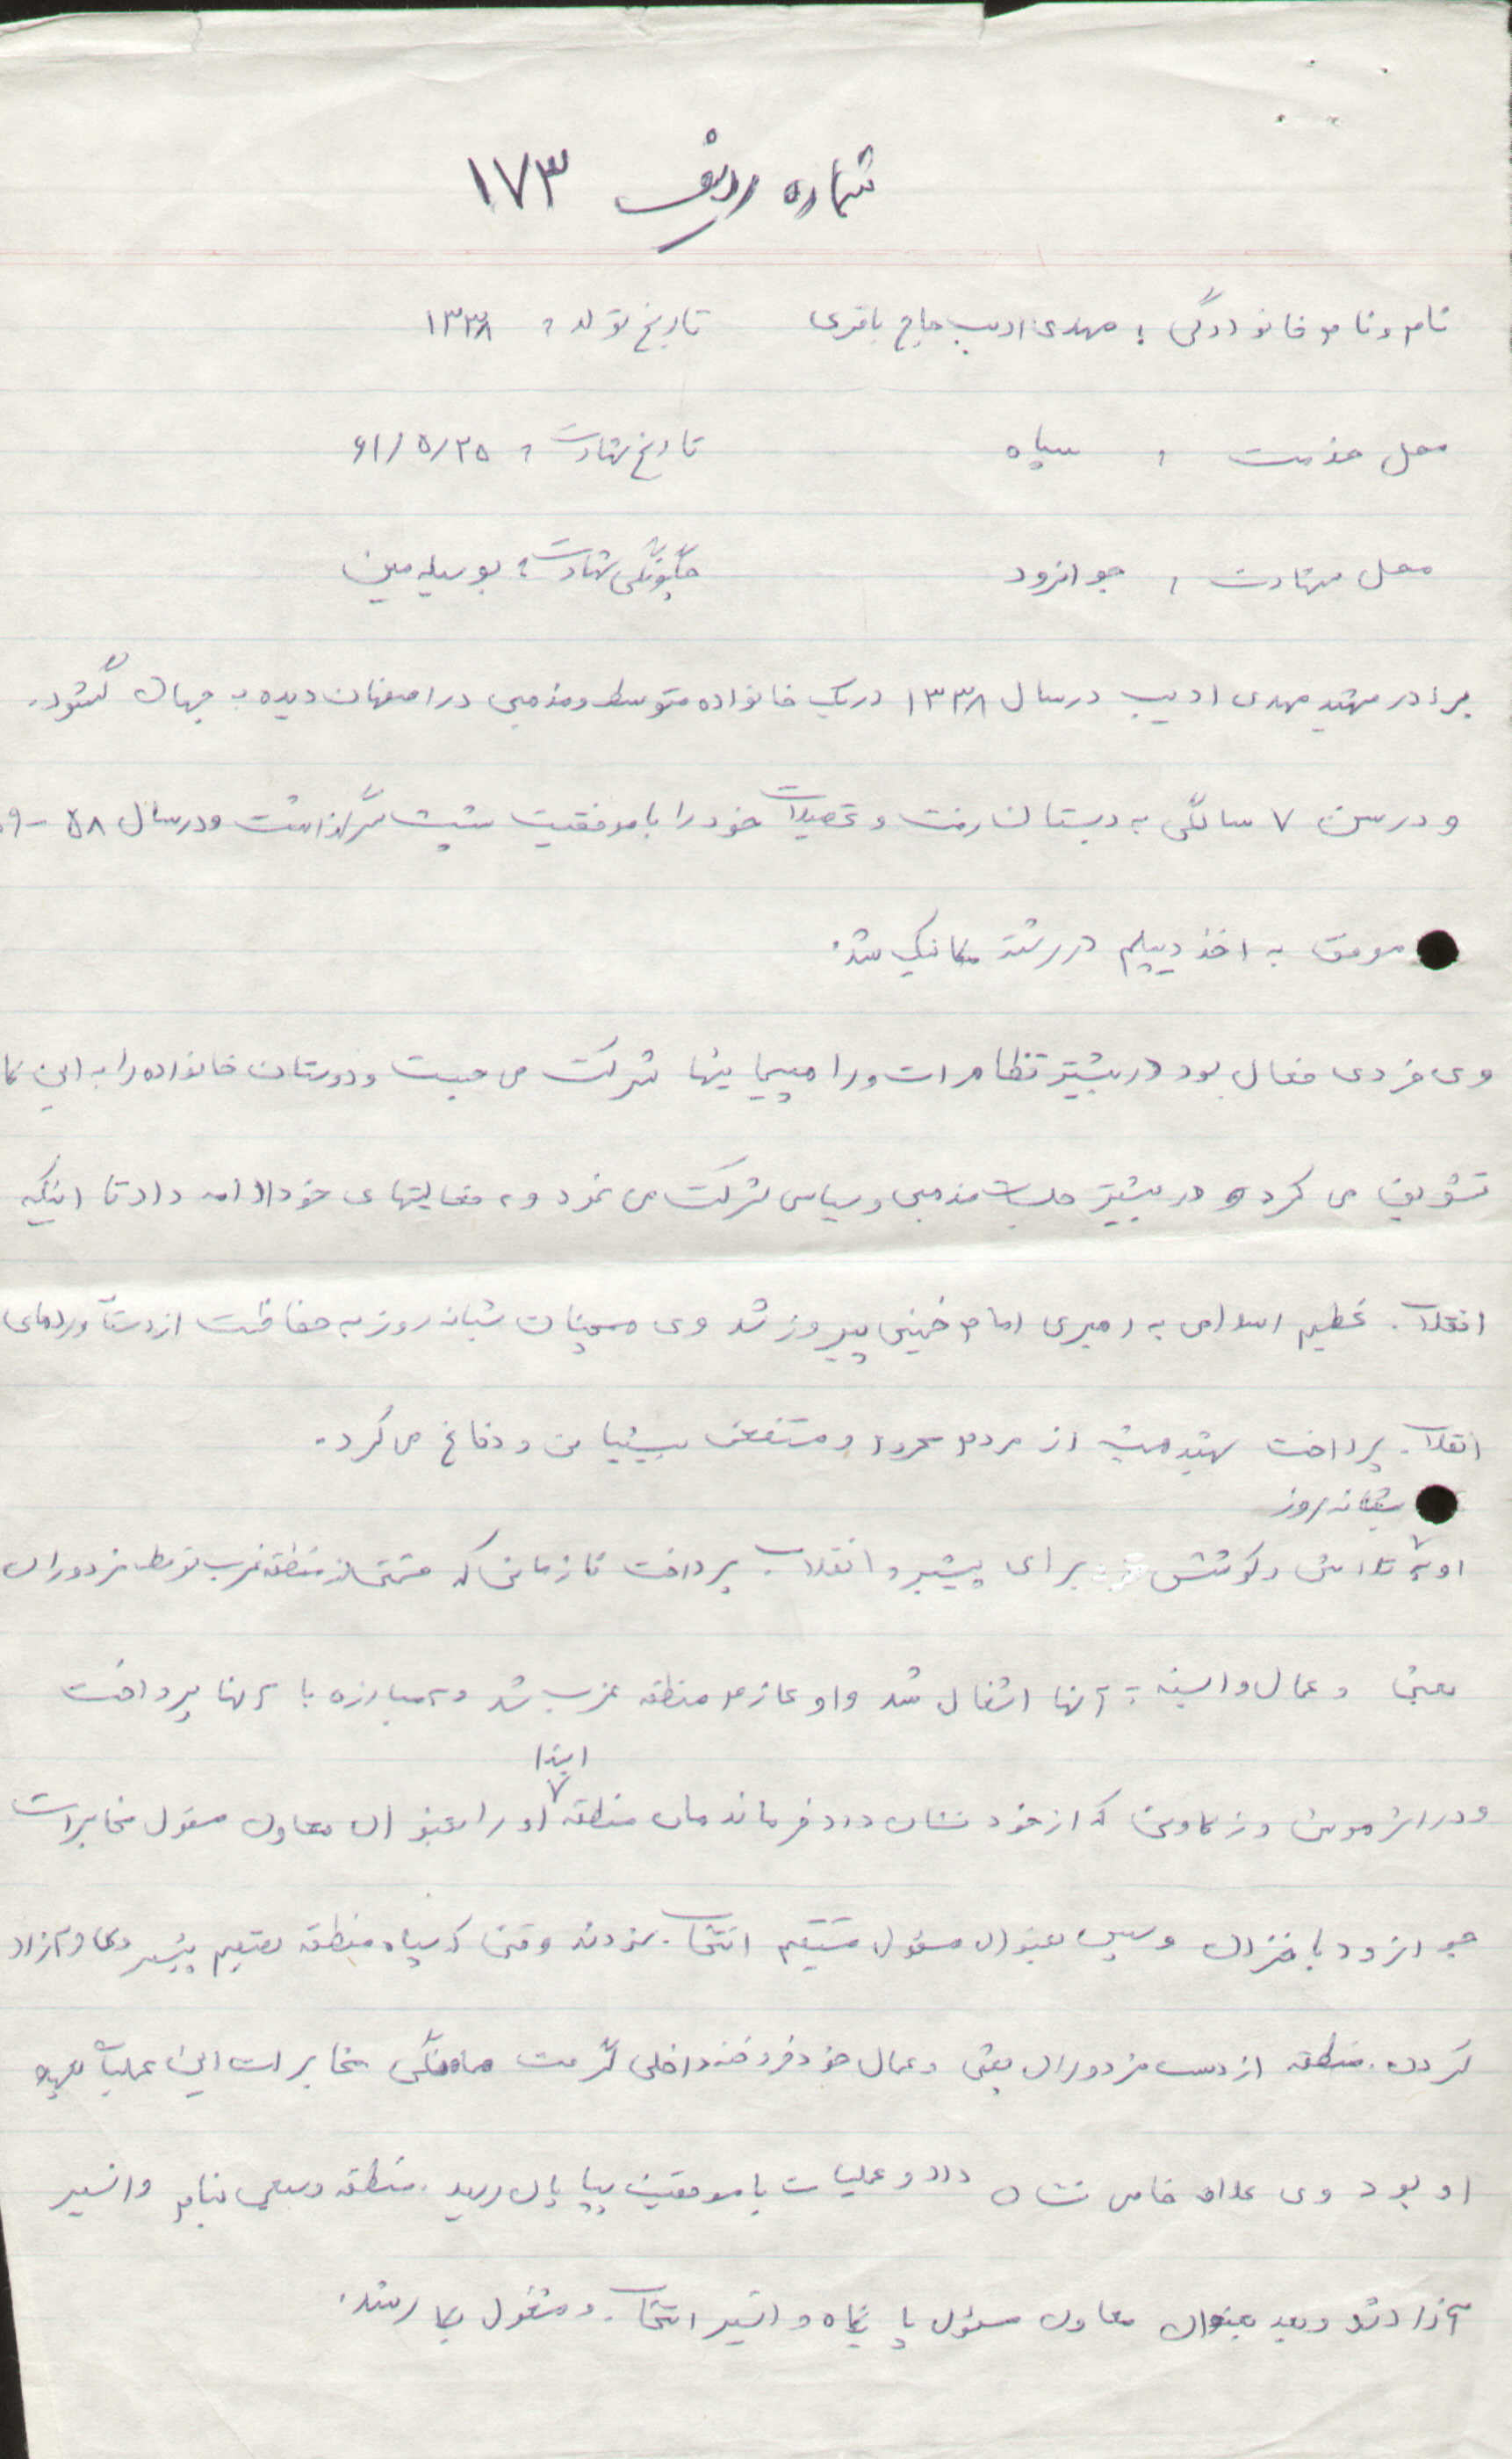 شماره ردیف ۱۷۳
نام و نام خانوادگی : مهدی ادیب حاج باقری تاریخ تولد : ۱۳۳۸
محل خدمت : سپاه تاریخ شهادت : ۶۱/۵/۲۵
محل شهادت : جوانرود چگونگی شهادت : بوسیله مین
برادر شهید مهدی ادیب در سال ۱۳۳۸ در یک خانواده متوسط و مذهبی در اصفهان دیده به جهان گشود.
و در سن ۷ سالگی به دبستان رفت و تحصیلات خود را با موفقیت پشت سر گذاشت و در سال ۵۸ -
موفق به اخذ دیپلم در رشته مکانیک شد.
وی فردی فعال بود در بیشتر تظاهرات و راهپیمایی‌ها شرکت می جست و دوستان خانواده را به این کا
تشویق می کرد و در بیشتر جلسات مذهبی و سیاسی شرکت می نمود و به فعالیتهای خود ادامه داد تا اینکه
انقلاب عظیم اسلامی به رهبری امام خمینی پیروز شد وی همچنان شبانه روز به حفاظت از دستاوردهای
انقلاب پرداخت شهید همیشه از مردم محروم و مستضعف پشتیبانی و دفاع می کرد.
شبانه روز
او به تلاش و کوشش برای پیشبرد انقلاب پرداخت تا زمانی که قسمتی از منطقه غرب توسط مزدوران
بعثی و عمال وابسته به آنها اشغال شد و او عازم منطقه غرب شد و به مبارزه با آنها پرداخت
ابتدا
و در اثر هوش و ذکاوتی که از خود نشان داد فرماندهان منطقه او را بعنوان معاون مسئول مخابرات
جوانرود باختران و سپس بعنوان مسئول مستقیم انتخاب نمودند وقتی که سپاه منطقه تصمیم پیشروی و آزاد
کردن منطقه از دست مزدوران بعثی و عمال خود فروخته داخلی گرفت هماهنگی مخابرات این عملیات بعهده
او بود وی علاقه خاصی نشان داد و عملیات با موفقیت بپایان رسید. منطقه وسیعی بنام وانسیر
آزاد شد و بعد بعنوان معاون مسئول پایگاه وانسیر انتخاب و مشغول بکار شد.